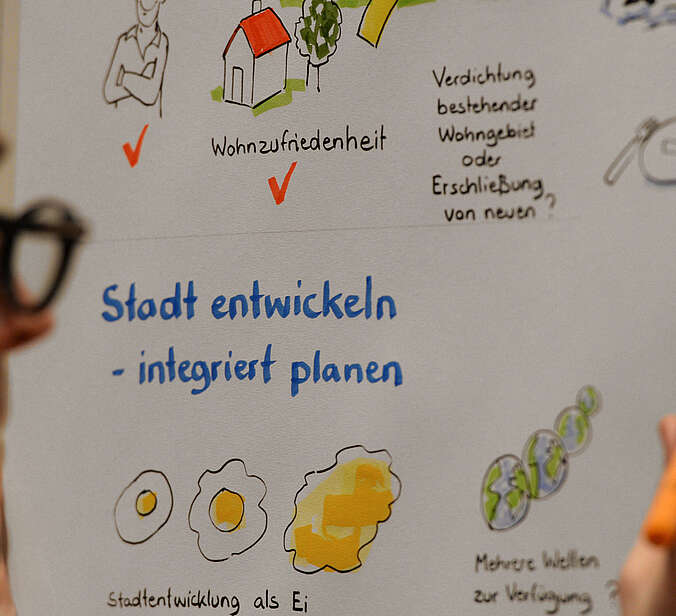 Wohnzufriedenheit
Verdichtung
bestehender
Wohngebiet
oder
Erschließung
von neuen?
Stadt entwickeln
- integriert planen
Stadtentwicklung als Ei
Mehrere Welten
zur Verfügung?